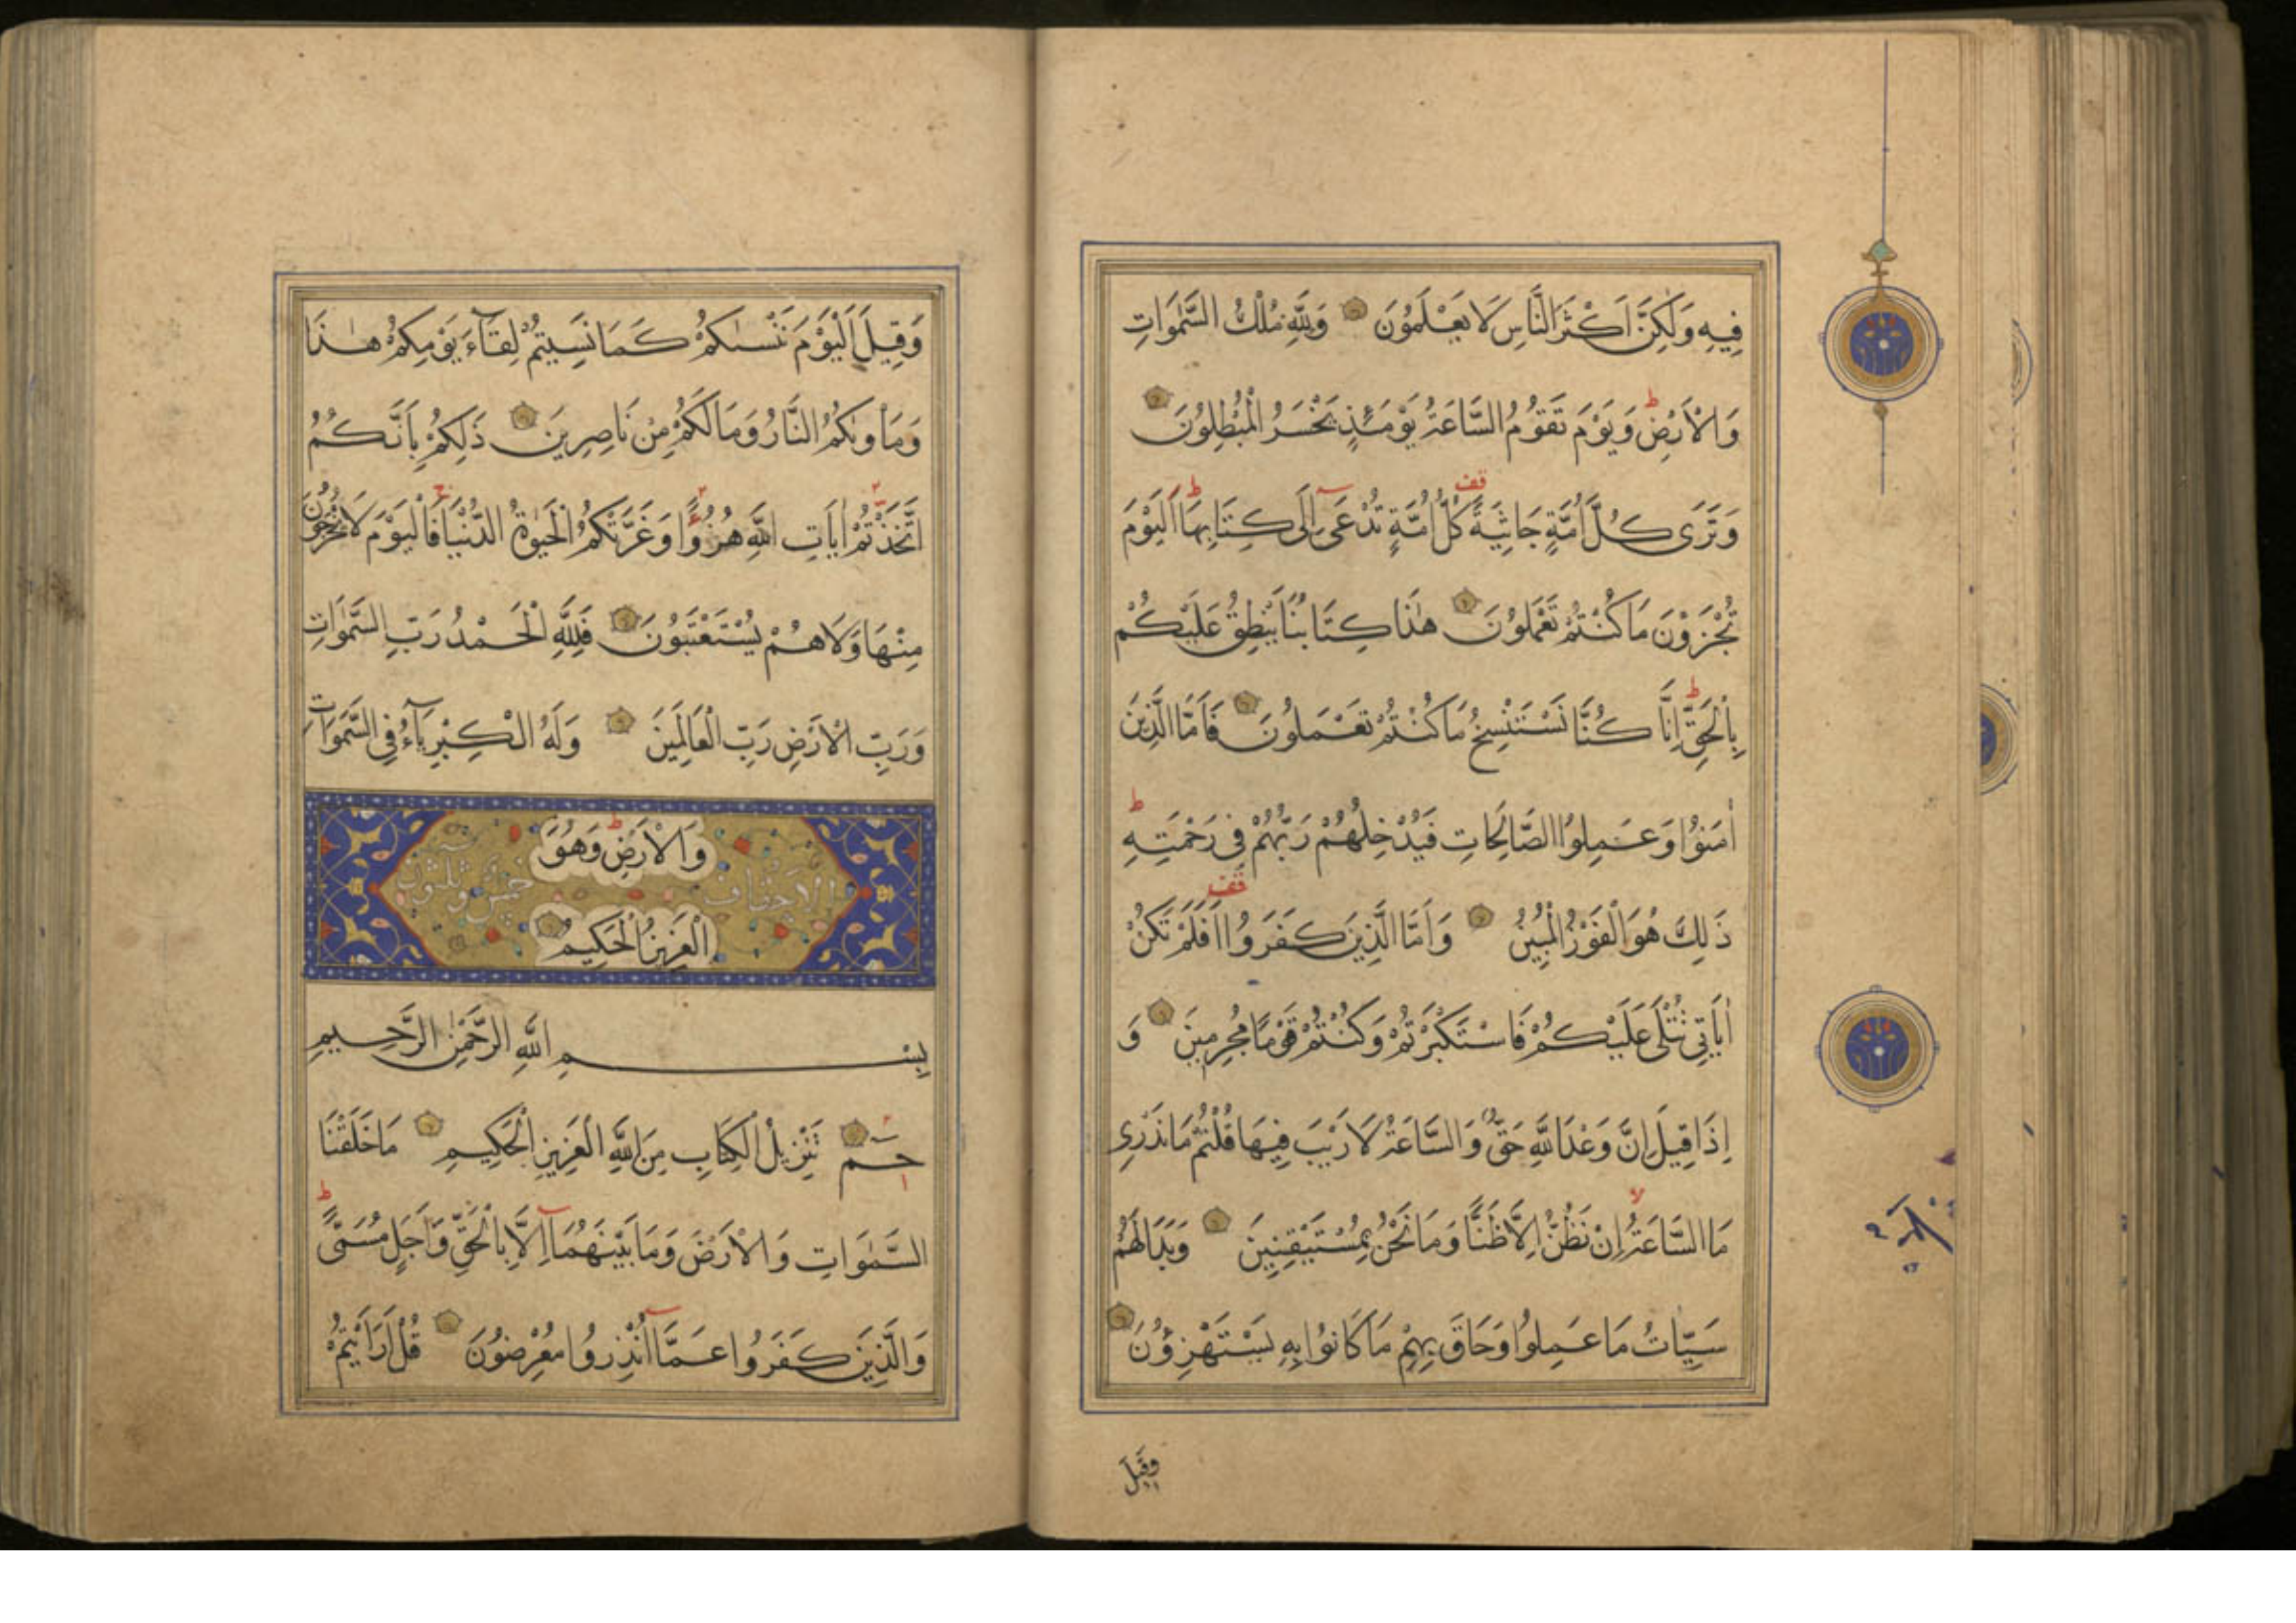 فِيهِ وَلَكِنَّ اَكْثَرَ النَّاسِ لَا يَعْلَمُونَ وَلِلَّهِ مُلْكُ السَّمٰوَاتِ
وَالْاَرْضِ ط وَيَوْمَ تَقُومُ السَّاعَةُ يَوْمَئِذٍ يَخْسَرُ الْمُبْطِلُونَ
وَتَرٰى كُلَّ اُمَّةٍ جَاثِيَةً قف كُلُّ اُمَّةٍ تُدْعٰى اِلَى كِتَابِهَا ط اَلْيَوْمَ
تُجْزَوْنَ مَا كُنْتُمْ تَعْمَلُونَ هٰذَا كِتَابُنَا يَنْطِقُ عَلَيْكُمْ
بِالْحَقِّ ط اِنَّا كُنَّا نَسْتَنْسِخُ مَا كُنْتُمْ تَعْمَلُونَ فَاَمَّا الَّذِينَ
اٰمَنُوا وَعَمِلُوا الصَّالِحَاتِ فَيُدْخِلُهُمْ رَبُّهُمْ فِي رَحْمَتِهِ ط
ذَلِكَ هُوَ الْفَوْزُ الْمُبِينُ وَاَمَّا الَّذِينَ كَفَرُوا قف اَفَلَمْ تَكُنْ
اٰيَاتِي تُتْلَى عَلَيْكُمْ فَاسْتَكْبَرْتُمْ وَكُنْتُمْ قَوْمًا مُجْرِمِينَ وَ
اِذَا قِيلَ اِنَّ وَعْدَ اللَّهِ حَقٌّ وَالسَّاعَةُ لَا رَيْبَ فِيهَا قُلْتُمْ مَا نَدْرِي
مَا السَّاعَةُ لا اِنْ نَظُنُّ اِلَّا ظَنًّا وَمَا نَحْنُ بِمُسْتَيْقِنِينَ وَبَدَا لَهُمْ
سَيِّاٰتُ مَا عَمِلُوا وَحَاقَ بِهِمْ مَا كَانُوا بِهِ يَسْتَهْزِؤُنَ
وَقِيلَ
وَقِيلَ الْيَوْمَ نَنْسٰىكُمْ كَمَا نَسِيتُمْ لِقَآءَ يَوْمِكُمْ هٰذَا
وَمَاْوٰىكُمُ النَّارُ وَمَا لَكُمْ مِنْ نَاصِرِينَ ذَلِكُمْ بِاَنَّكُمُ
اتَّخَذْتُمْ اٰيَاتِ اللَّهِ هُزُوًا وَغَرَّتْكُمُ الْحَيٰوةُ الدُّنْيَا ج فَالْيَوْمَ لَا يُخْرَجُونَ
مِنْهَا وَلَا هُمْ يُسْتَعْتَبُونَ فَلِلَّهِ الْحَمْدُ رَبِّ السَّمٰوَاتِ
وَرَبِّ الْاَرْضِ رَبِّ الْعَالَمِينَ وَلَهُ الْكِبْرِيَآءُ فِي السَّمٰوَاتِ
وَالْاَرْضِ ط وَهُوَ
الاحقاف خمس وثلثون
الْعَزِيزُ الْحَكِيمُ
بِسْمِ اللَّهِ الرَّحْمٰنِ الرَّحِيمِ
حم تَنْزِيلُ الْكِتَابِ مِنَ اللَّهِ الْعَزِيزِ الْحَكِيمِ مَا خَلَقْنَا
السَّمٰوَاتِ وَالْاَرْضَ وَمَا بَيْنَهُمَا اِلَّا بِالْحَقِّ وَاَجَلٍ مُسَمًّى ط
وَالَّذِينَ كَفَرُوا عَمَّا اُنْذِرُوا مُعْرِضُونَ قُلْ اَرَاَيْتُمْ